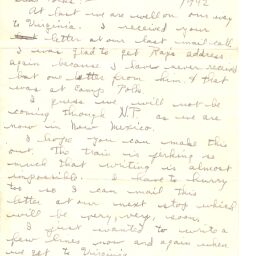 Dear Folks: - 1942
At last we are well on our way
to Virginia. I received your
letter at our last mail call.
I was glad to get Ray's address
again because I have never received
but one letter from him & that
was at Camp Polk.
I guess we will not be
coming through N.P. as we are
now in New Mexico.
I hope you can make this
out. The train is jerking so
much that writing is almost
impossible. I have to hurry
too so I can mail this
letter at our next stop which
will be very, very, soon.
I just wanted to write a
few lines now and again when
we get to Virginia